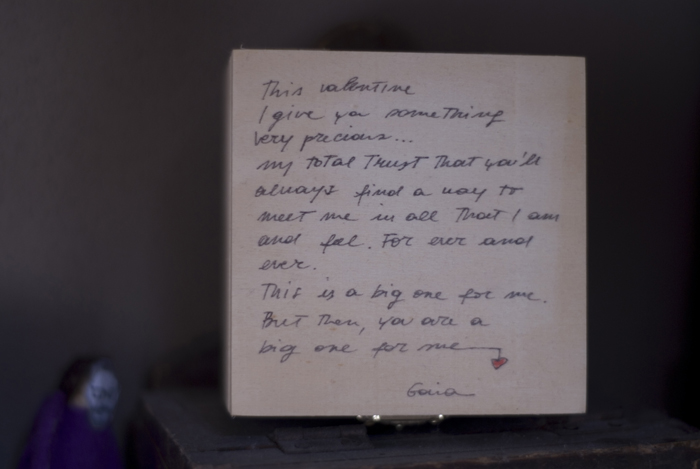 This valentine
I give you something
very precious...
my total Trust That you'll
always find a way to
meet me in all That I am
and feel. For ever and
ever.
This is a big one for me.
But Then, you are a
big one for me
Gaia